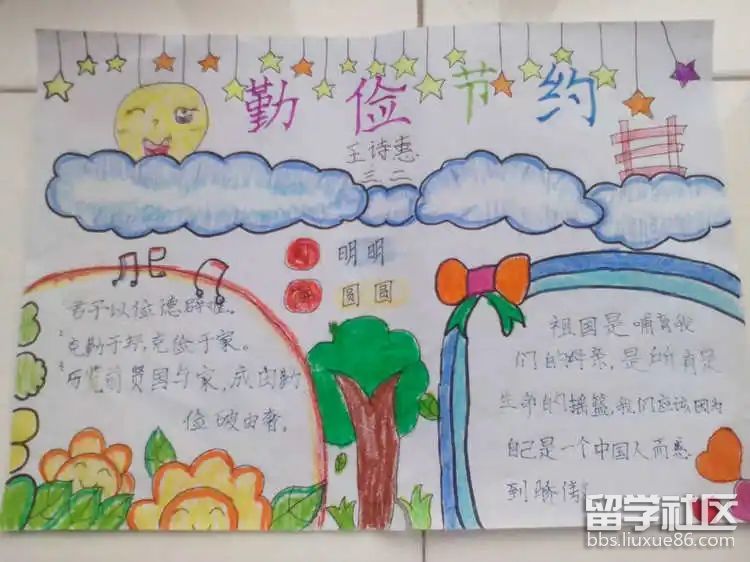 勤俭节约
王诗惠
三、二
明明
圆圆
君子以俭德辟难。
克勤于邦,克俭于家。
历览前贤国与家,成由勤
俭破由奢。
祖国是哺育我
们的母亲,是所有是
生命的摇篮,我们应该因为
自己是一个中国人而感
到骄傲
留学社区
bbs.liuxue86.com